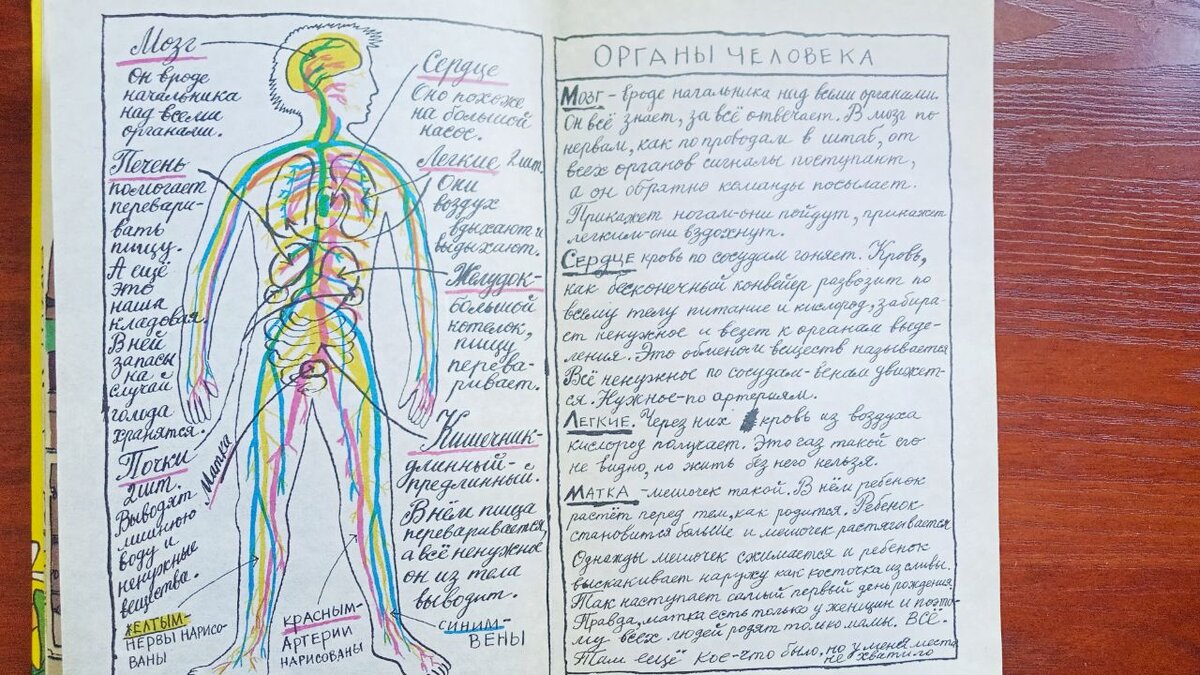 Мозг
Он вроде
начальника
над всеми
органами.
Печень
помогает
перевари-
вать
пищу.
А ещё
это
наша
кладовая.
В ней
запасы
на
случай
голода
хранятся.
Почки
2 шт.
Выводят
лишнюю
воду и
ненужные
вещества.
Матка
Сердце
Оно похоже
на большой
насос.
Легкие 2 шт.
Они
воздух
вдыхают и
выдыхают.
Желудок-
большой
котелок,
пищу
перева-
ривает.
Кишечник-
длинный-
предлинный.
В нём пища
переваривается,
а всё ненужное
он из тела
выводит.
ЖЕЛТЫМ-
НЕРВЫ НАРИСО-
ВАНЫ
КРАСНЫМ-
АРТЕРИИ
НАРИСОВАНЫ
СИНИМ-
ВЕНЫ
ОРГАНЫ ЧЕЛОВЕКА
МОЗГ - вроде начальника над всеми органами.
Он всё знает, за всё отвечает. В мозг по
нервам, как по проводам в штаб, от
всех органов сигналы поступают,
а он обратно команды посылает.
Прикажет ногам-они пойдут, прикажет
легким-они вздохнут.
СЕРДЦЕ кровь по сосудам гоняет. Кровь,
как бесконечный конвейер развозит по
всему телу питание и кислород, забира-
ет ненужное и везет к органам выде-
ления. Это обменом веществ называется
Всё ненужное по сосудам-венам движет-
ся. Нужное-по артериям.
ЛЕГКИЕ. Через них кровь из воздуха
кислород получает. Это газ такой его
не видно, но жить без него нельзя.
МАТКА - мешочек такой. В нём ребенок
растёт перед тем, как родится. Ребенок
становится больше и мешочек растягивается
Однажды мешочек сжимается и ребенок
выскакивает наружу как косточка из сливы.
Так наступает самый первый день рождения.
Правда, матка есть только у женщин и поэто-
му всех людей родят только мамы. ВСЁ.
Там ещё кое-что было, но у меня места
не хватило